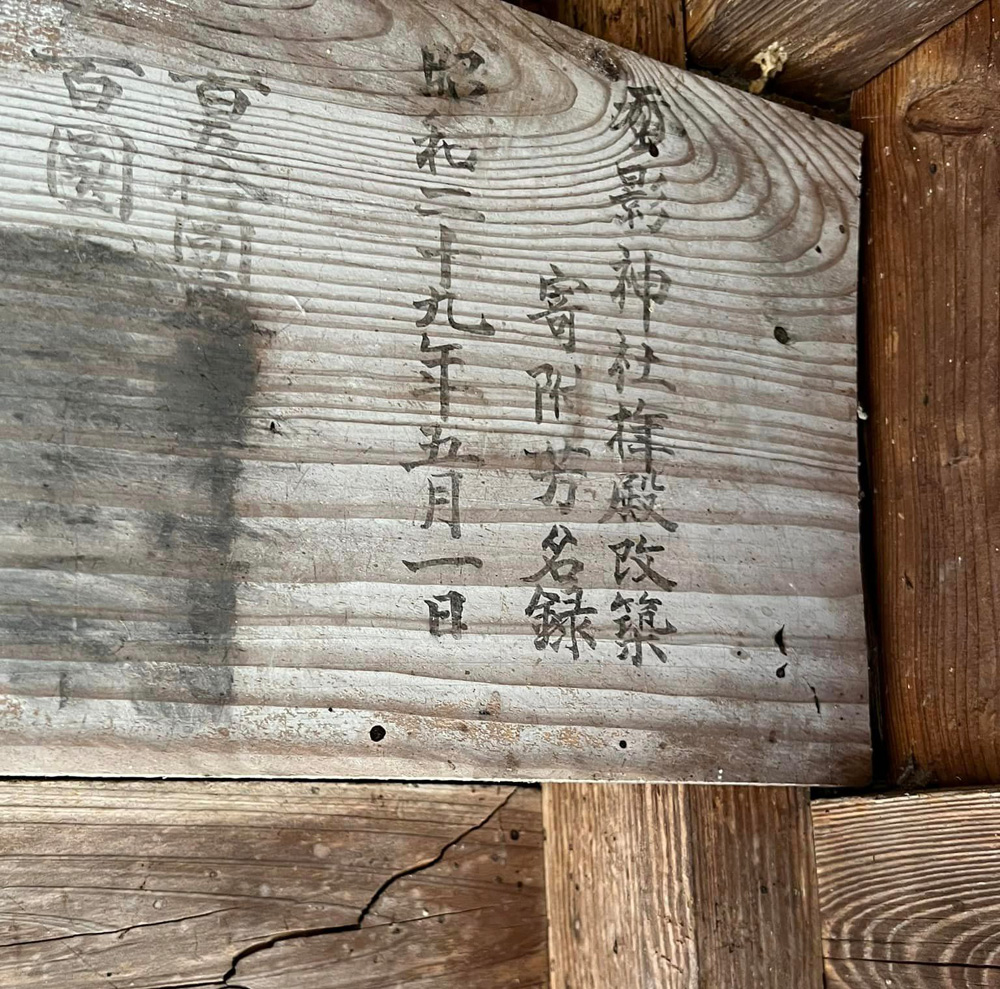 蚕影神社拝殿改築
寄附芳名録
昭和二十九年五月一日
百五拾圓
百圓